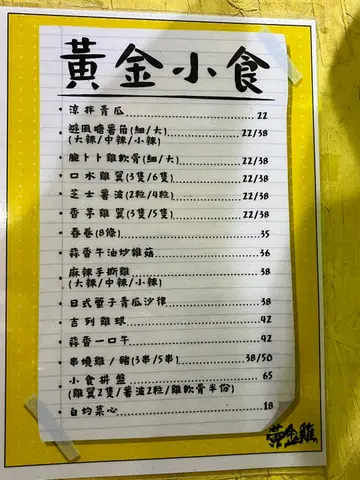 黃金小食
涼拌青瓜 22
避風塘薯角(細/大) 22/38
(大辣/中辣/小辣)
脆卜卜雞軟骨(細/大) 22/38
口水雞翼(3隻/6隻) 22/38
芝士薯波(2粒/4粒) 22/38
香茅雞翼(3隻/5隻) 22/38
春卷(8條) 35
蒜香牛油炒雜菇 36
麻辣手撕雞 38
(大辣/中辣/小辣)
日式蟹子青瓜沙律 38
吉列雞球 42
蒜香一口牛 42
串燒雞/豬(3串/5串) 38/50
小食拼盤 65
(雞翼2隻/薯波2粒/雞軟骨半份)
白灼菜心 18
黃金雞